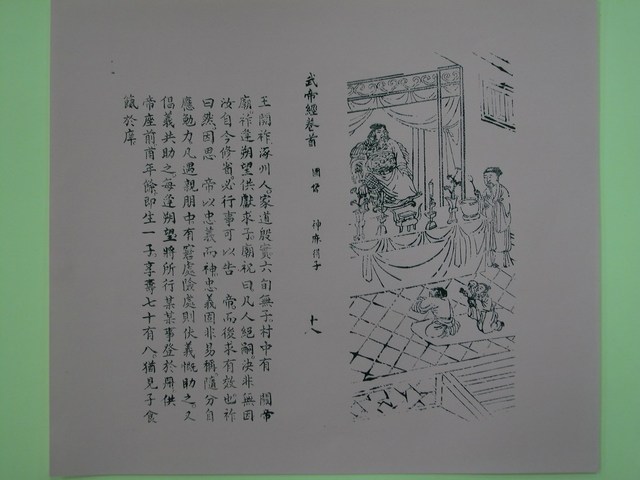 武帝經卷首
圖
神
十八
王開祚涿州人家道殷實六旬無子村中有　關帝
廟祚逢朔望供獻求子廟祝曰凡人絕嗣決非無因
汝自今修省必行事可以告　帝而後求有效也祚
曰然因思　帝以忠義而神忠義固非易稱隨分自
應勉力凡遇親朋中有窘處險處則仗義慨助之又
倡義共助之每逢朔望將所行某某事登於冊供
帝座前甫年餘即生一子享壽七十有八猶見子食
餼於庠